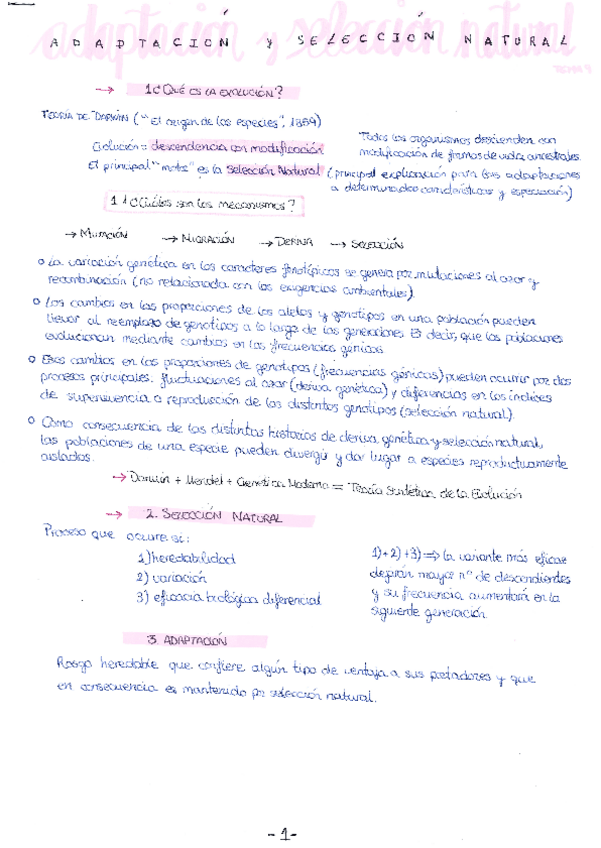 adaptación y selección natural
ADAPTACIÓN y SELECCIÓN NATURAL
TEMA 9
→ 1 ¿QUÉ ES LA EVOLUCIÓN?
TEORÍA DE DARWIN ("El origen de las especies", 1859)
Evolución = descendencia con modificación
Todos los organismos descienden con
modificación de formas de vida ancestrales.
El principal "motor" es la Selección Natural (principal explicación para las adaptaciones
a determinadas características y especiación)
1.1 ¿Cuáles son los mecanismos?
→ MUTACIÓN → MIGRACIÓN → DERIVA → SELECCIÓN
o La variación genética en los caracteres fenotípicos se genera por mutaciones al azar y
recombinación (no relacionada con las exigencias ambientales).
o Los cambios en las proporciones de los alelos y genotipos en una población pueden
llevar al reemplazo de genotipos a lo largo de las generaciones. Es decir, que las poblaciones
evolucionan mediante cambios en las frecuencias génicas.
o Esos cambios en las proporciones de genotipos (frecuencias génicas) pueden ocurrir por dos
procesos principales: fluctuaciones al azar (deriva genética) y diferencias en los índices
de supervivencia o reproducción de los distintos genotipos (selección natural).
o Como consecuencia de las distintas historias de deriva genética y selección natural,
las poblaciones de una especie pueden divergir y dar lugar a especies reproductivamente
aisladas.
→ Darwin + Mendel + Genética Moderna = Teoría Sintética de la Evolución
→ 2. SELECCIÓN NATURAL
Proceso que ocurre si:
1) heredabilidad
2) variación
3) eficacia biológica diferencial
1) + 2) + 3) ⇒ la variante más eficaz
dejarán mayor nº de descendientes
y su frecuencia aumentará en la
siguiente generación.
3. ADAPTACIÓN
Rasgo heredable que confiere algún tipo de ventaja a sus portadores y que
en consecuencia es mantenido por selección natural.
- 1 -